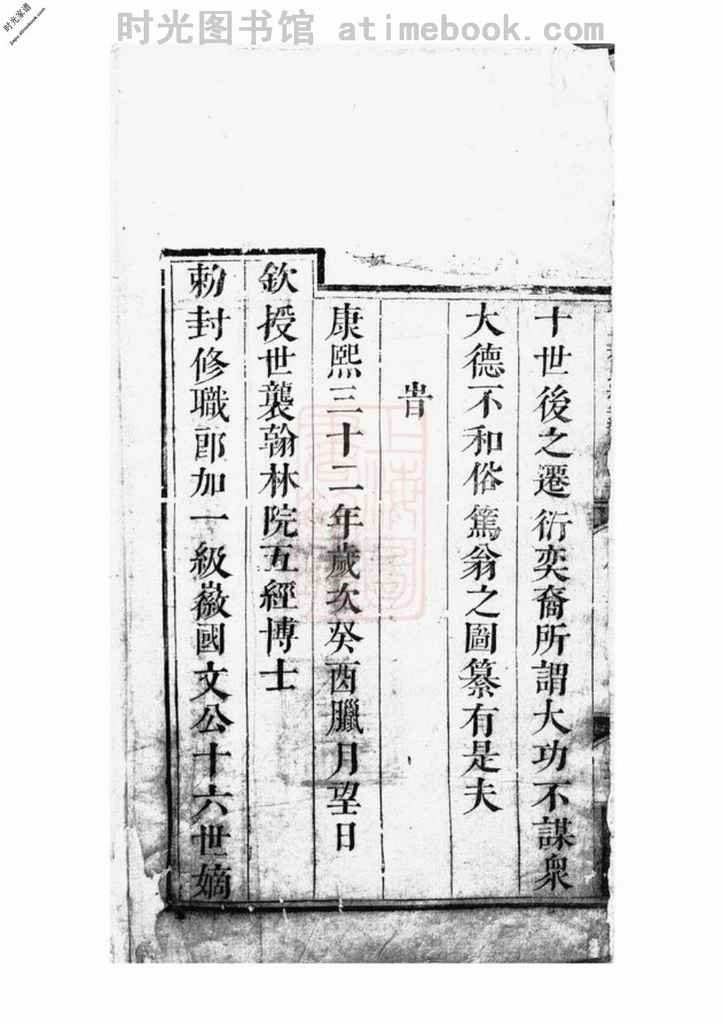 时光图书馆 atimebook.com
时光家谱
jiapu.atimebook.com
十世後之遷衍奕裔所謂大功不謀衆
大德不和俗篤翁之圖纂有是夫
旹
康熙三十二年歲次癸酉臘月望日
欽授世襲翰林院五經博士
勑封修職郎加一級徽國文公十六世嫡